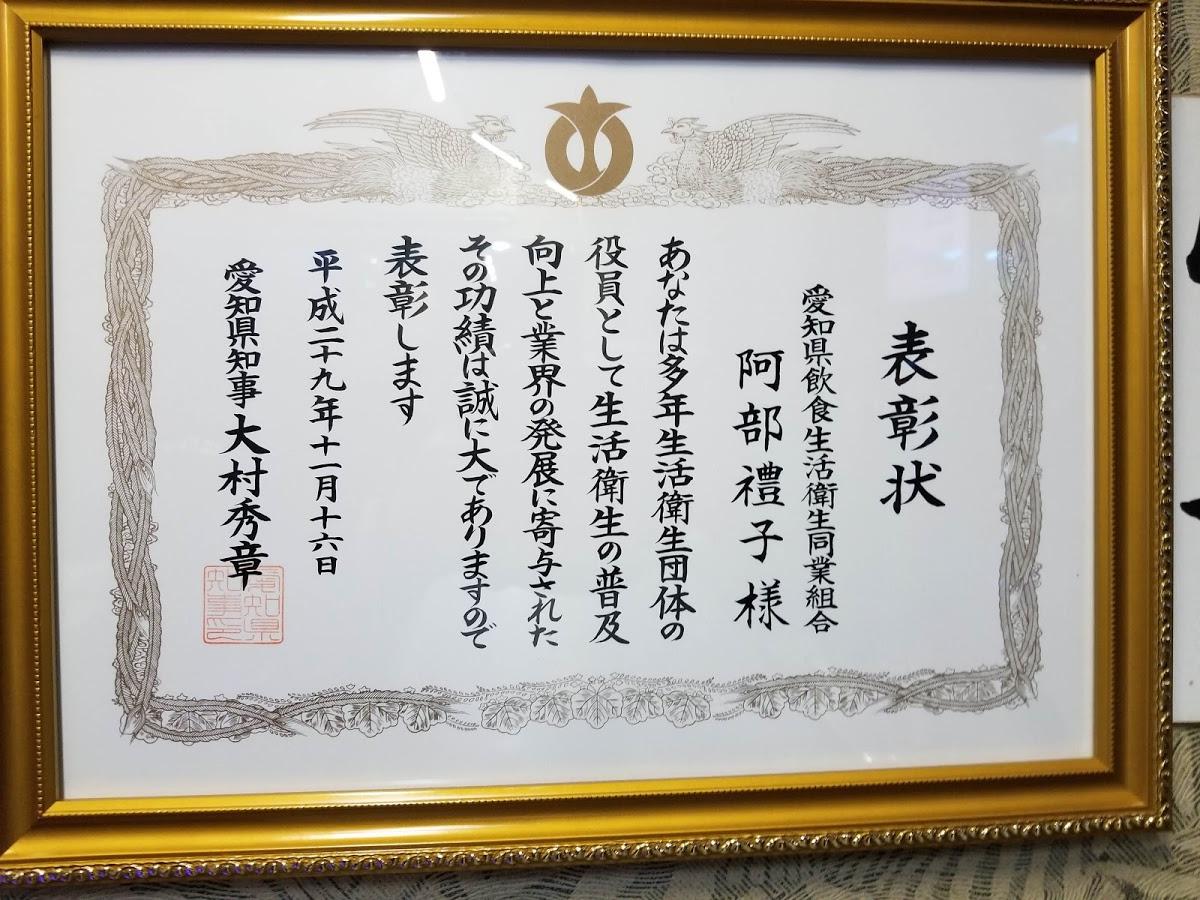 表彰状
愛知県飲食生活衛生同業組合
阿部禮子様
あなたは多年生活衛生団体の
役員として生活衛生の普及
向上と業界の発展に寄与された
その功績は誠に大でありますので
表彰します
平成二十九年十一月十六日
愛知県知事 大村秀章
愛知県
知事印